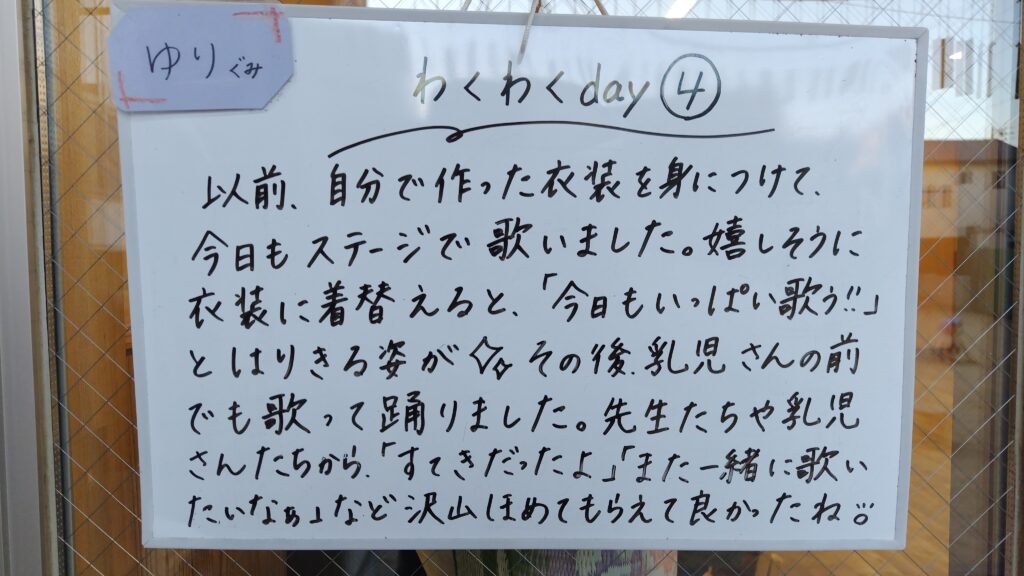 ゆりぐみ
わくわくday④
以前、自分で作った衣装を身につけて、
今日もステージで歌いました。嬉しそうに
衣装に着替えると、「今日もいっぱい歌う!!」
とはりきる姿が✧✧その後、乳児さんの前
でも歌って踊りました。先生たちや乳児
さんたちから、「すてきだったよ」「また一緒に歌い
たいなぁ」など沢山ほめてもらえて良かったね。